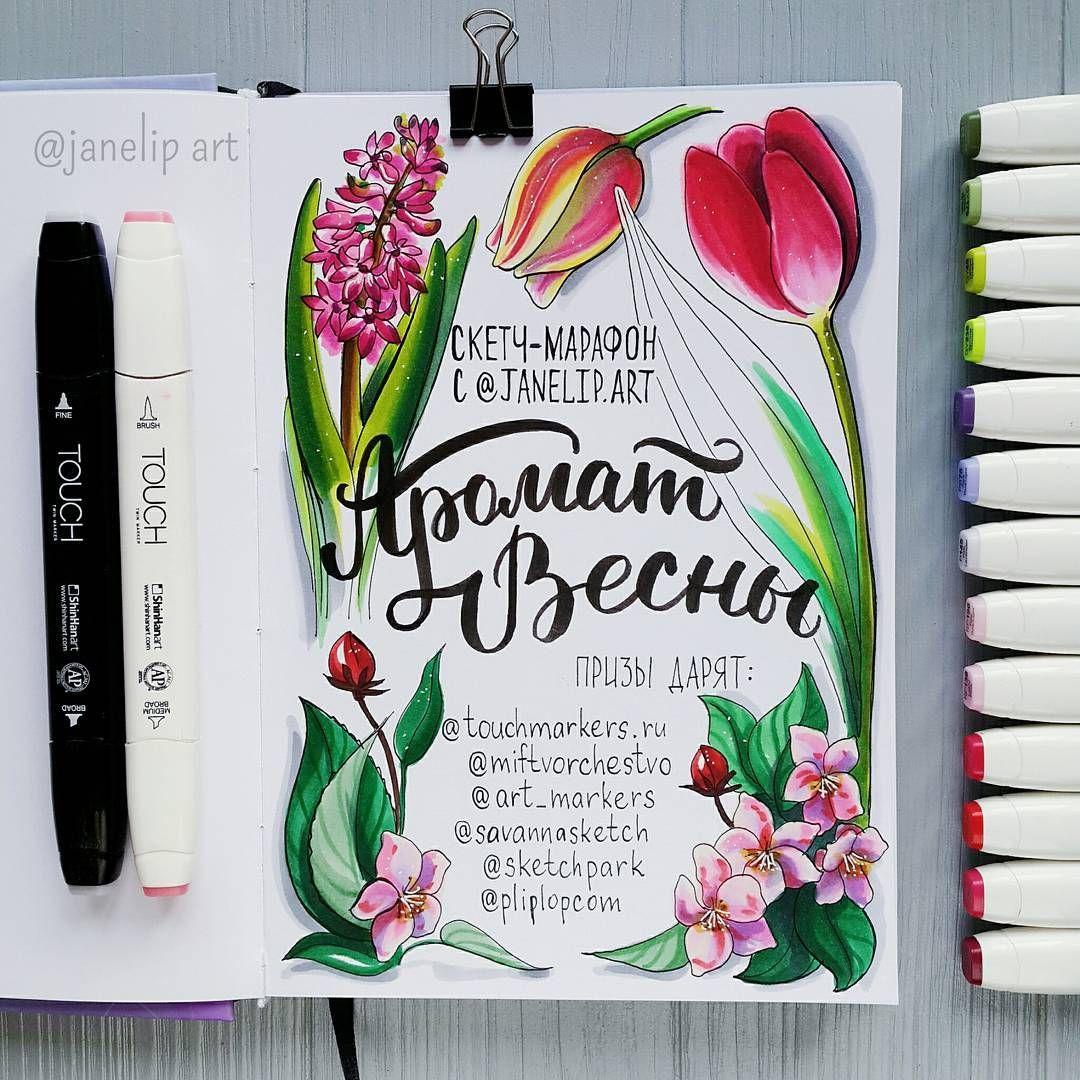 @janelip art
СКЕТЧ-МАРАФОН
С @JANELIP.ART
Аромат
Весны
ПРИЗЫ ДАРЯТ:
@touchmarkers.ru
@miftvorchestvo
@art_markers
@savannasketch
@sketchpark
@pliplopcom
FINE
TOUCH
TWIN MARKER
ShinHanart
www.shinhanart.com
AP
BROAD
BRUSH
TOUCH
TWIN MARKER
ShinHanart
www.shinhanart.com
AP
MEDIUM BROAD